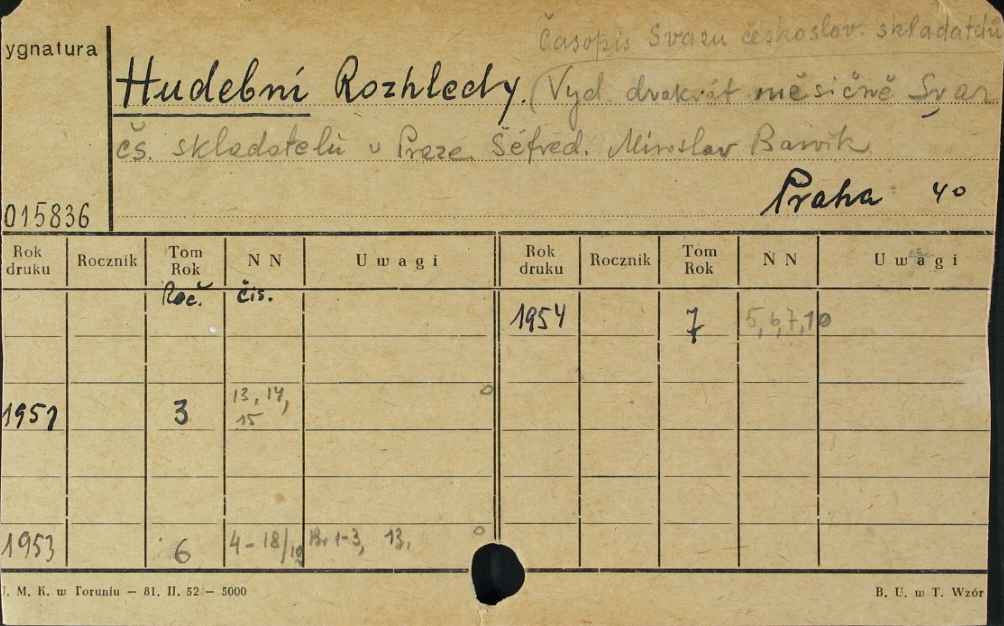 Časopis Svazu českoslov. skladatelů
ygnatura
Hudební Rozhledy. (Vyd. dvakrát měsíčně Svaz
čs. skladatelů v Praze. Šéfred. Miroslav Barvík
Praha 40
015836
Rok druku Rocznik Tom Rok N N Uwagi Rok druku Rocznik Tom Rok N N Uwagi
Roč. čís.
1954 7 5, 6, 7, 10
1951 3 13, 14,
15
1953 6 4-18/19 Br 1-3, 13,
U. M. K. w Toruniu — 81. II. 52 — 5000 B. U. w T. Wzór